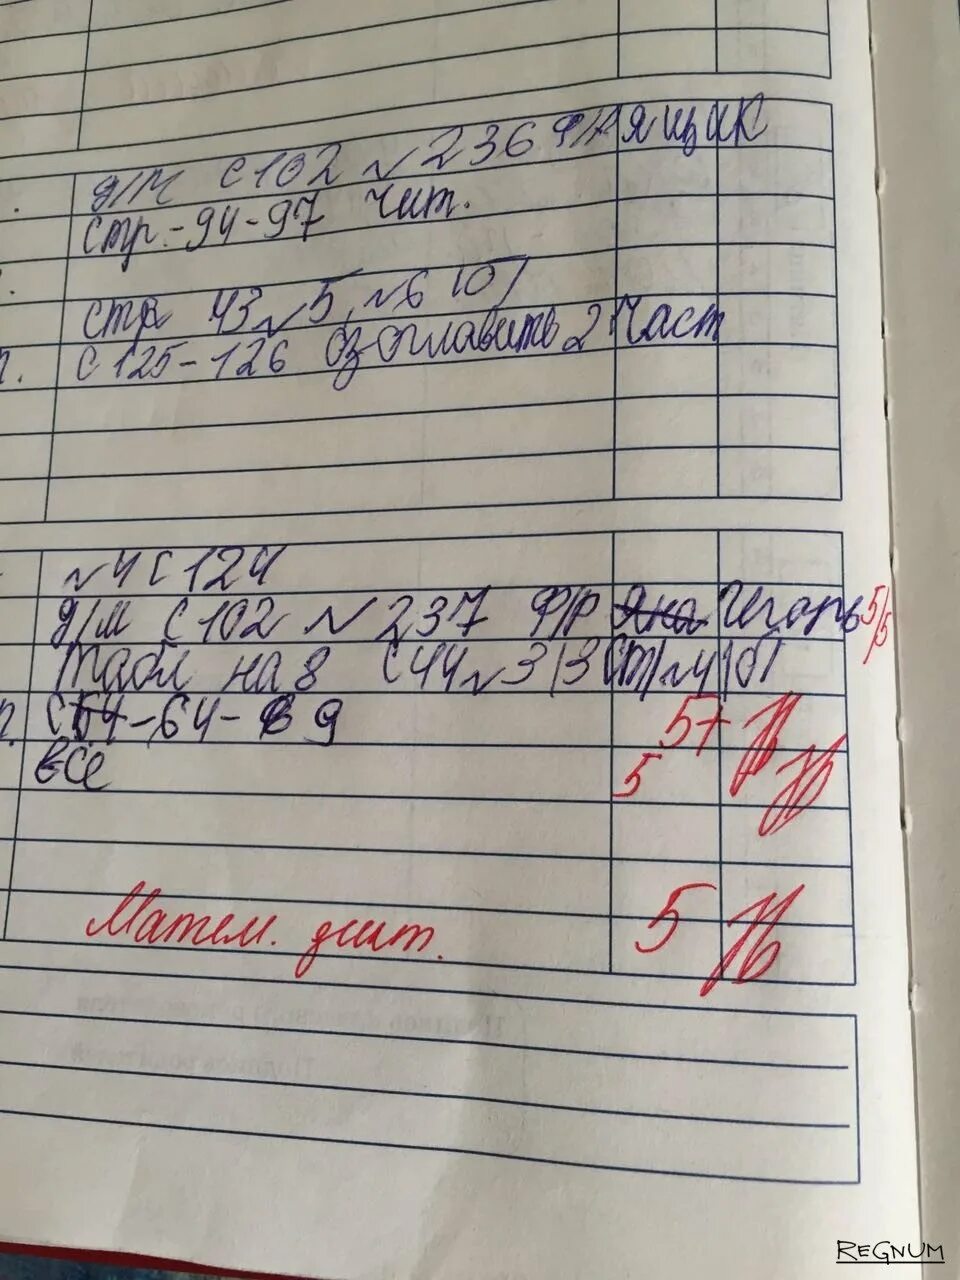 д/м с102 №236 ф/р ящик
стр.-94-97 Чит.
стр 43 №5, №6 (б)
п. с 125-126 озоглавить 2 Част
№4 с 124
д/м с 102 №237 ф/р Игорь 5/5
табл на 8 с44 №3|3 ст|№4|б|
п. с 64-64-в 9
5+
все
5
Матем. дикт. 5
Подпись родителей
REGNUM